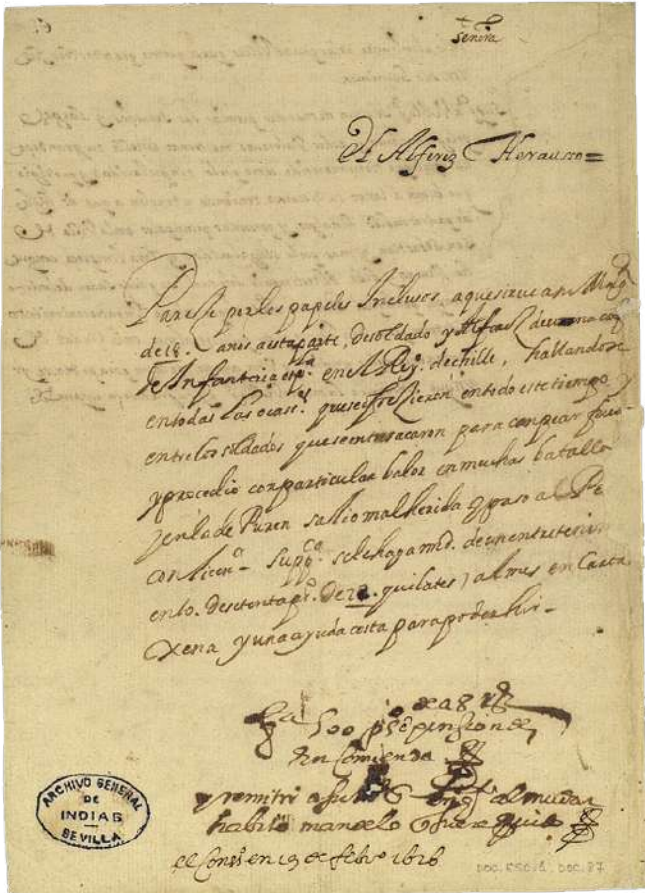 señora
El Alferez Herausso =
Pareze por los papeles Inclusos, aque sirve a su Magd
de 18. años a esta parte, de soldado y Alferez de una compª
de Infanteria espªla en el Reyº. de chille, hallandose
en todas Las ocasˢ. que se ofrezieron en todo este tiempo y
entre los soldados que se entresacaron para conpear fue
y procedio con particular balor en muchas batallas
y en la de Puren salio mal herida y paso a
con licenª suppcª. se le haga md. de un entreteni
ento. de setenta pº. De 22. quilates / al mes en Carta
xena y una ayuda costa para poderse hir
500 pº de pension de
encomienda
y remitir a su
habito
el Consº en 19 de febrº 1626
ARCHIVO GENERAL
DE
INDIAS
SEVILLA
DOC. ESC. 6 DOC. 87